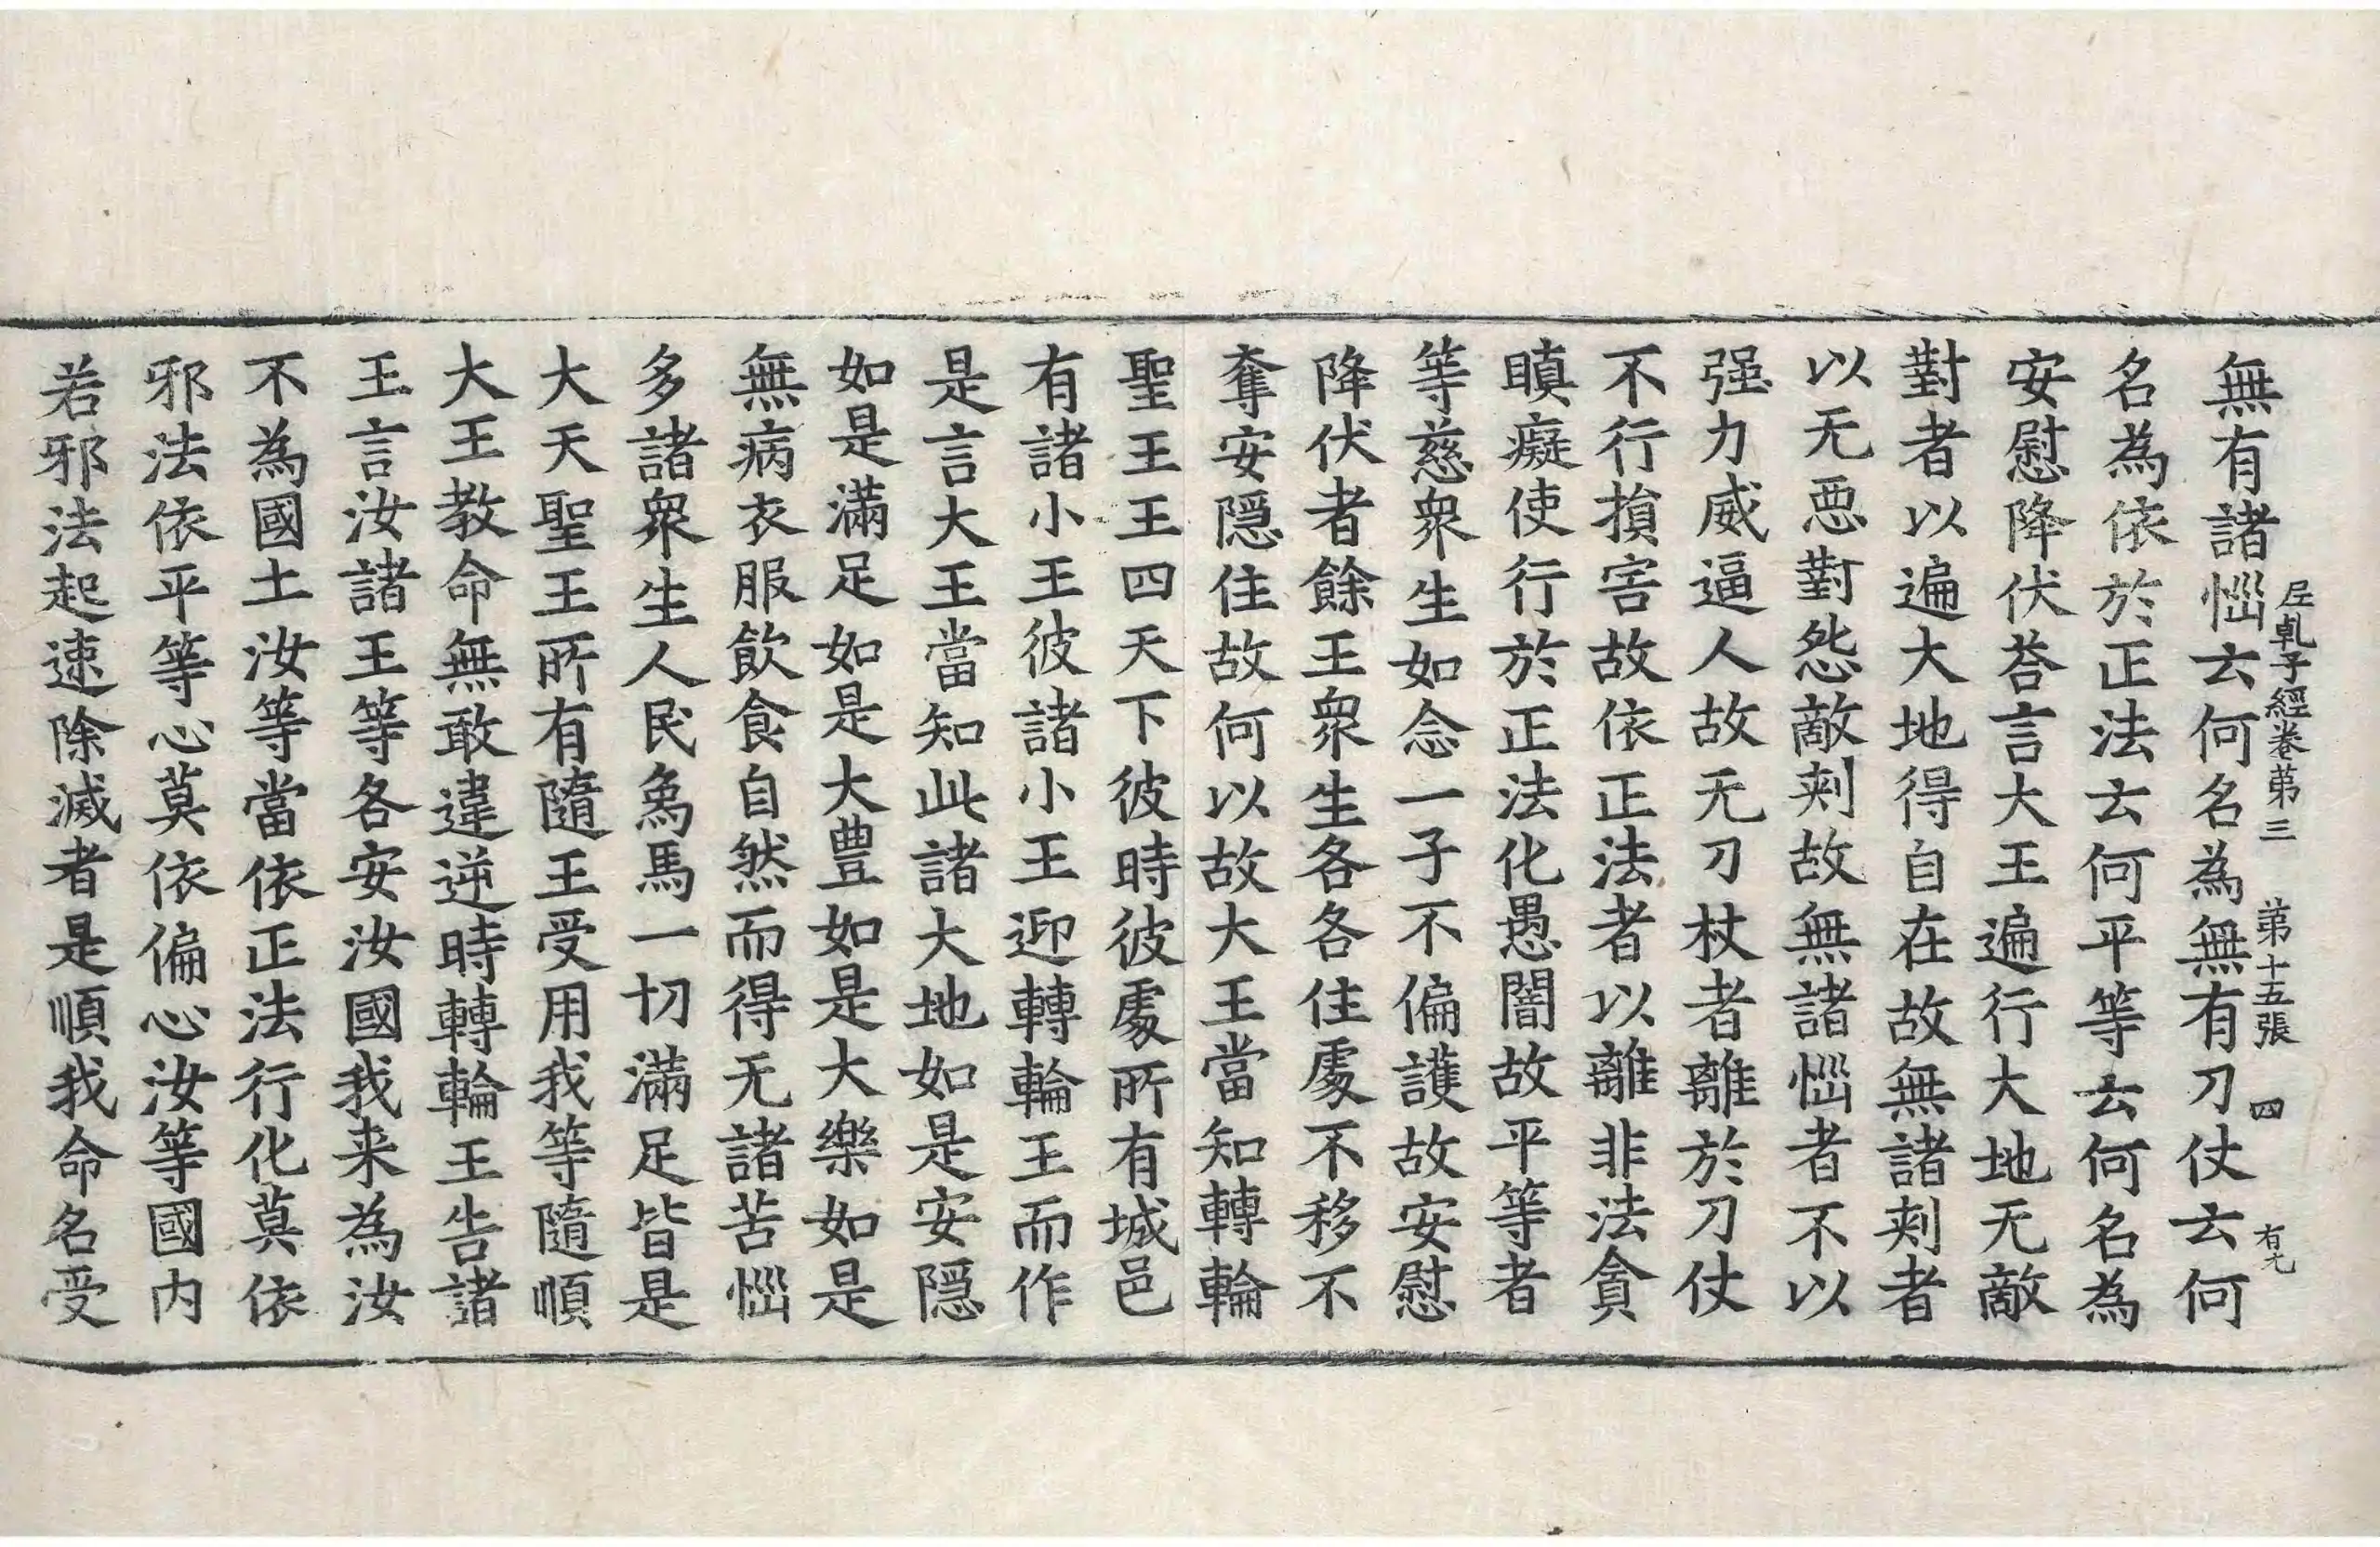 無有諸惱云何名為無有刀仗云何
𡰱乹子經卷第三 第十五張 四 有九
名為依於正法云何平等云何名為
安慰降伏荅言大王遍行大地无敵
對者以遍大地得自在故無諸刾者
以无惡對怨敵刾故無諸惱者不以
强力威逼人故无刀杖者離於刀仗
不行損害故依正法者以離非法貪
瞋癡使行於正法化愚闇故平等者
等慈衆生如念一子不偏護故安慰
降伏者餘王衆生各各住處不移不
奪安隱住故何以故大王當知轉輪
聖王王四天下彼時彼處所有城邑
有諸小王彼諸小王迎轉輪王而作
是言大王當知此諸大地如是安隱
如是滿足如是大豊如是大樂如是
無病衣服飲食自然而得无諸苦惱
多諸衆生人民象馬一切滿足皆是
大天聖王所有隨王受用我等隨順
大王教命無敢違逆時轉輪王告諸
王言汝諸王等各安汝國我来為汝
不為國土汝等當依正法行化莫依
邪法依平等心莫依偏心汝等國内
若邪法起速除滅者是順我命名受